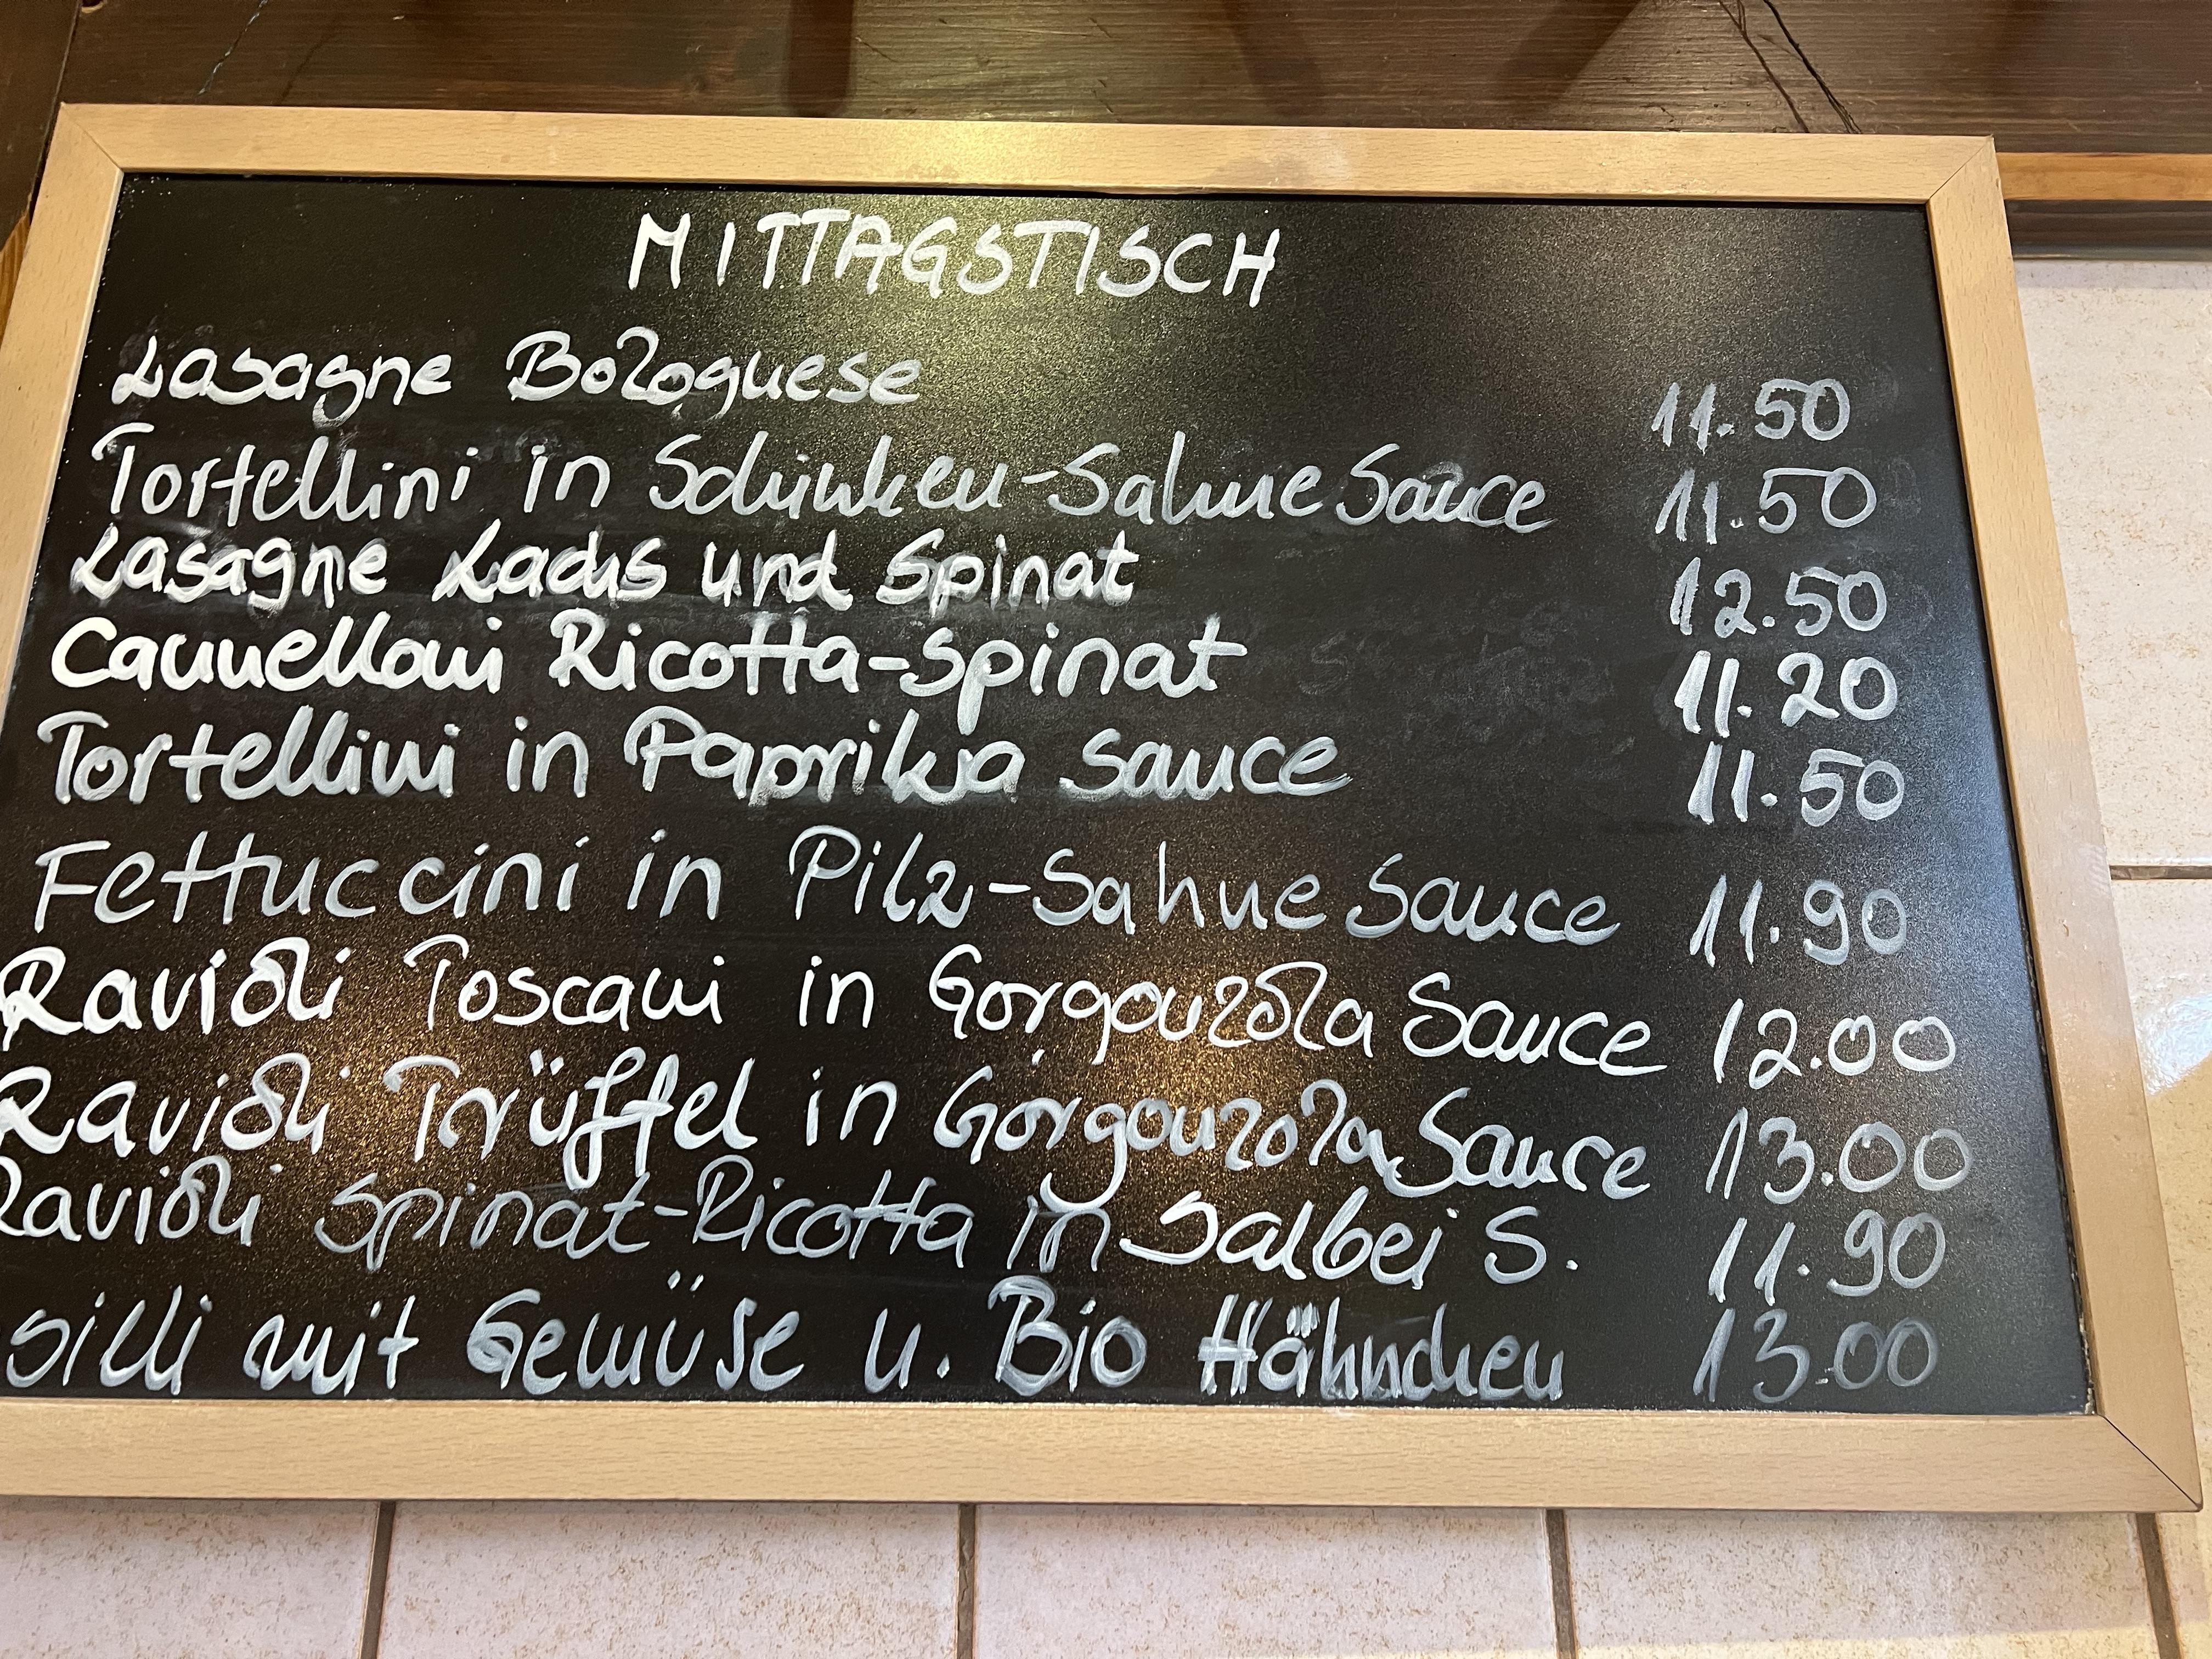 MITTAGSTISCH
Lasagne Bolognese 11.50
Tortellini in Schinken-Sahne Sauce 11.50
Lasagne Lachs und Spinat 12.50
Cannelloni Ricotta-Spinat 11.20
Tortellini in Paprika Sauce 11.50
Fettuccini in Pilz-Sahne Sauce 11.90
Ravioli Toscani in Gorgonzola Sauce 12.00
Ravioli Trüffel in Gorgonzola Sauce 13.00
Ravioli Spinat-Ricotta in Salbei S. 11.90
silli mit Gemüse u. Bio Hähnchen 13.00